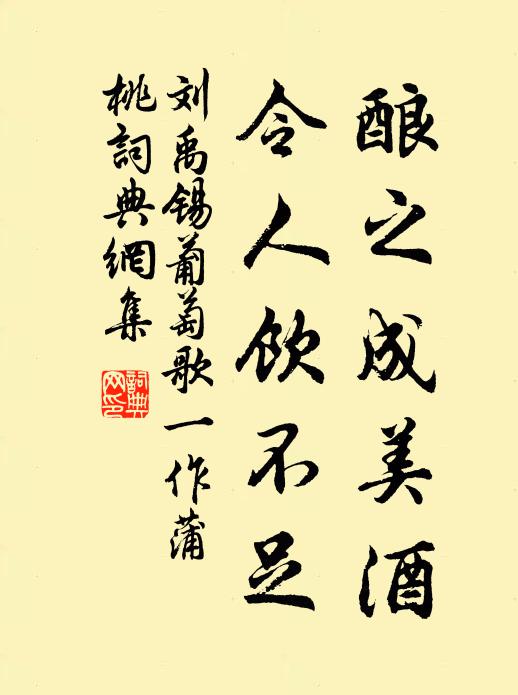 酿之成美酒
令人饮不足
刘禹锡葡萄歌一作蒲
桃詞典網集
詞典網印